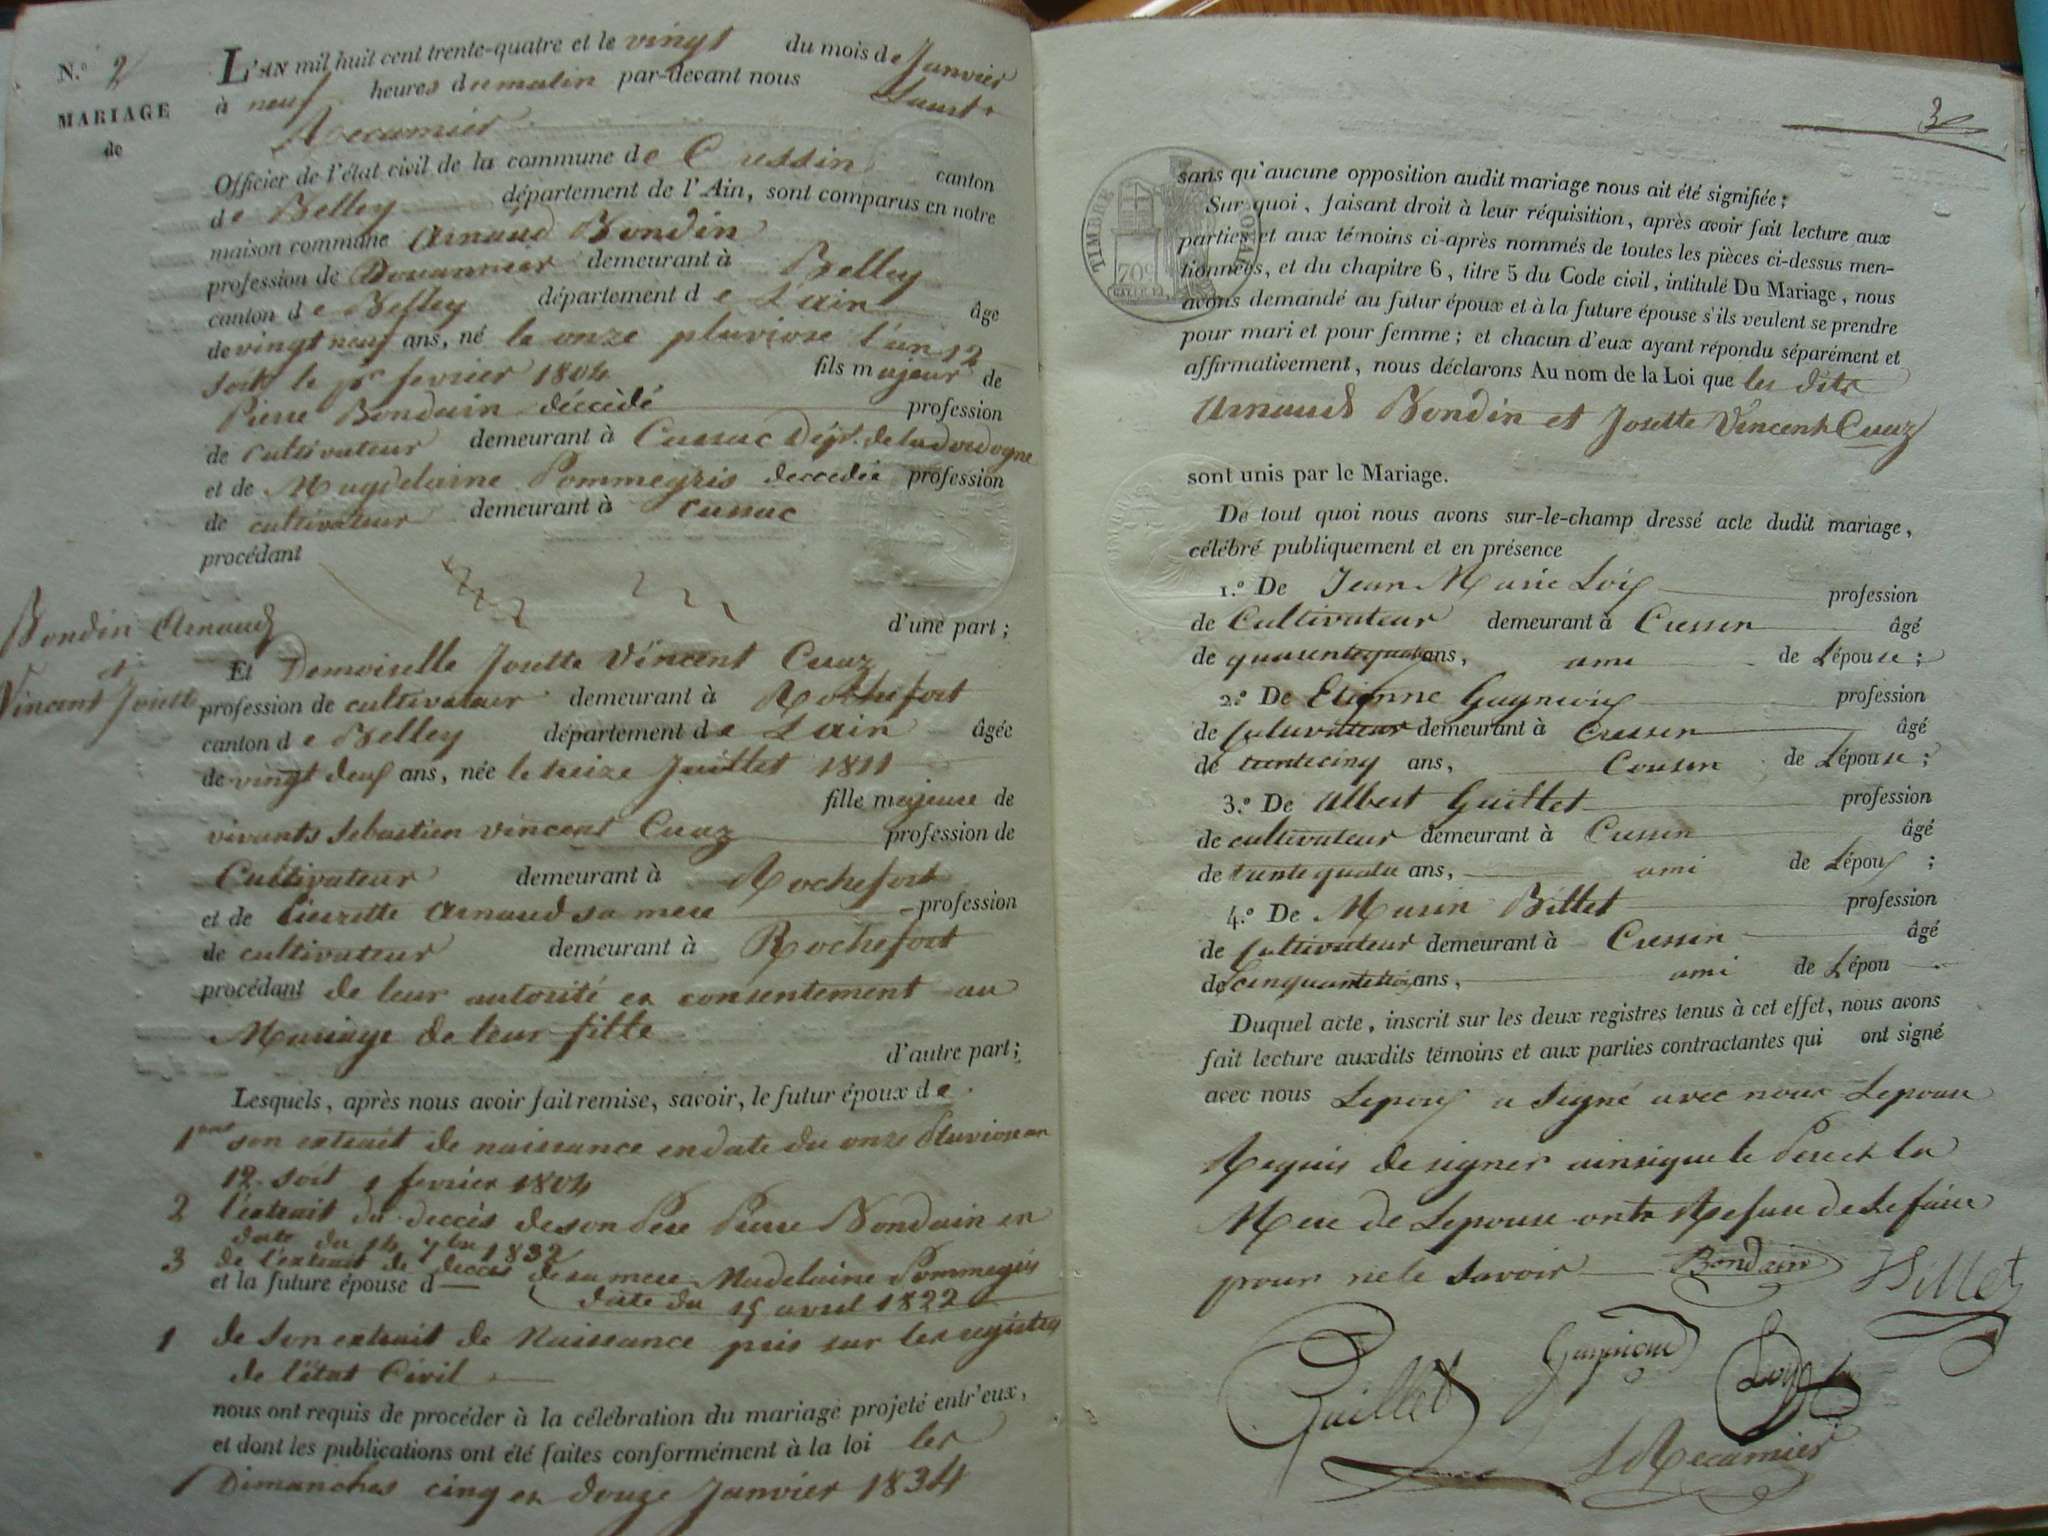 N.º 2
MARIAGE
de
Bondin Arnaud
et
Vincent Josette
L'AN mil huit cent trente-quatre et le vingt du mois de Janvier
à neuf heures du matin par-devant nous Laurt
Recamier
Officier de l'état civil de la commune de Cressin canton
de Belley département de l'Ain, sont comparus en notre
maison commune Arnaud Bondin
profession de Douannier demeurant à Belley
canton de Belley département de L'ain âge
de vingt neuf ans, né le onze pluviose l'an 12
soit le pr fevrier 1804 fils majeur de
Pierre Bonduin déccédé profession
de cultivateur demeurant à Cussac Dépt. de la dordogne
et de Magdelaine Pommegris deccedée profession
de cultivateur demeurant à Cussac
procédant
d'une part;
Et Demoiselle Josette Vincent Cuaz
profession de cultivateur demeurant à Rochefort
canton de Belley département de L'ain âgée
de vingt deux ans, née le treize Juillet 1811
fille majeure de
vivants Sebastien Vincent Cuaz profession de
Cultivateur demeurant à Rochefort
et de Pierrette Arnaud sa mere profession
de cultivateur demeurant à Rochefort
procédant de leur autorité et consentement au
Mariage de leur fille
d'autre part;
Lesquels, après nous avoir fait remise, savoir, le futur époux de
1ent son extrait de naissance en date du onze Pluviose an
12 soit 1 fevrier 1804
2 l'extrait du deccès de son Pere Pierre Bonduin en
date du 14 7bre 1832
3 de l'extrait de deccès de sa mere Madelaine Pommegris
et la future épouse d date du 15 avril 1822
1 de Son extrait de Naissance pris sur les registres
de l'état Civil
nous ont requis de procéder à la célébration du mariage projeté entr'eux,
et dont les publications ont été faites conformément à la loi les
Dimanches cinq et douze Janvier 1834
3
TIMBRE ROYAL
70c
sans qu'aucune opposition audit mariage nous ait été signifiée;
Sur quoi, faisant droit à leur réquisition, après avoir fait lecture aux
parties et aux témoins ci-après nommés de toutes les pièces ci-dessus men-
tionnées, et du chapitre 6, titre 5 du Code civil, intitulé Du Mariage, nous
avons demandé au futur époux et à la future épouse s'ils veulent se prendre
pour mari et pour femme; et chacun d'eux ayant répondu séparément et
affirmativement, nous déclarons Au nom de la Loi que les dits
Arnaud Bondin et Josette Vincent Cuaz
sont unis par le Mariage.
De tout quoi nous avons sur-le-champ dressé acte dudit mariage,
célébré publiquement et en présence
1.º De Jean Marie Loix profession
de Cultivateur demeurant à Cressin âgé
de quarente quatre ans, ami de L'épouse;
2.º De Etienne Gagnieux profession
de Cultivateur demeurant à Cressin âgé
de trente cinq ans, Cousin de L'épouse;
3.º De Albert Guillet profession
de cultivateur demeurant à Cressin âgé
de trente quatre ans, ami de L'époux;
4.º De Marin Billet profession
de Cultivateur demeurant à Cressin âgé
de Cinquante trois ans, ami de L'épou
Duquel acte, inscrit sur les deux registres tenus à cet effet, nous avons
fait lecture auxdits témoins et aux parties contractantes qui ont signé
avec nous Lepoux a Signé avec nous Lepouse
Requis de signer ainsi que le Pere et la
Mere de Lepouse ont Refusé de Le faire
pour ne le Savoir Bondain Billet
Guillet Gagnieux Loix
L Recamier